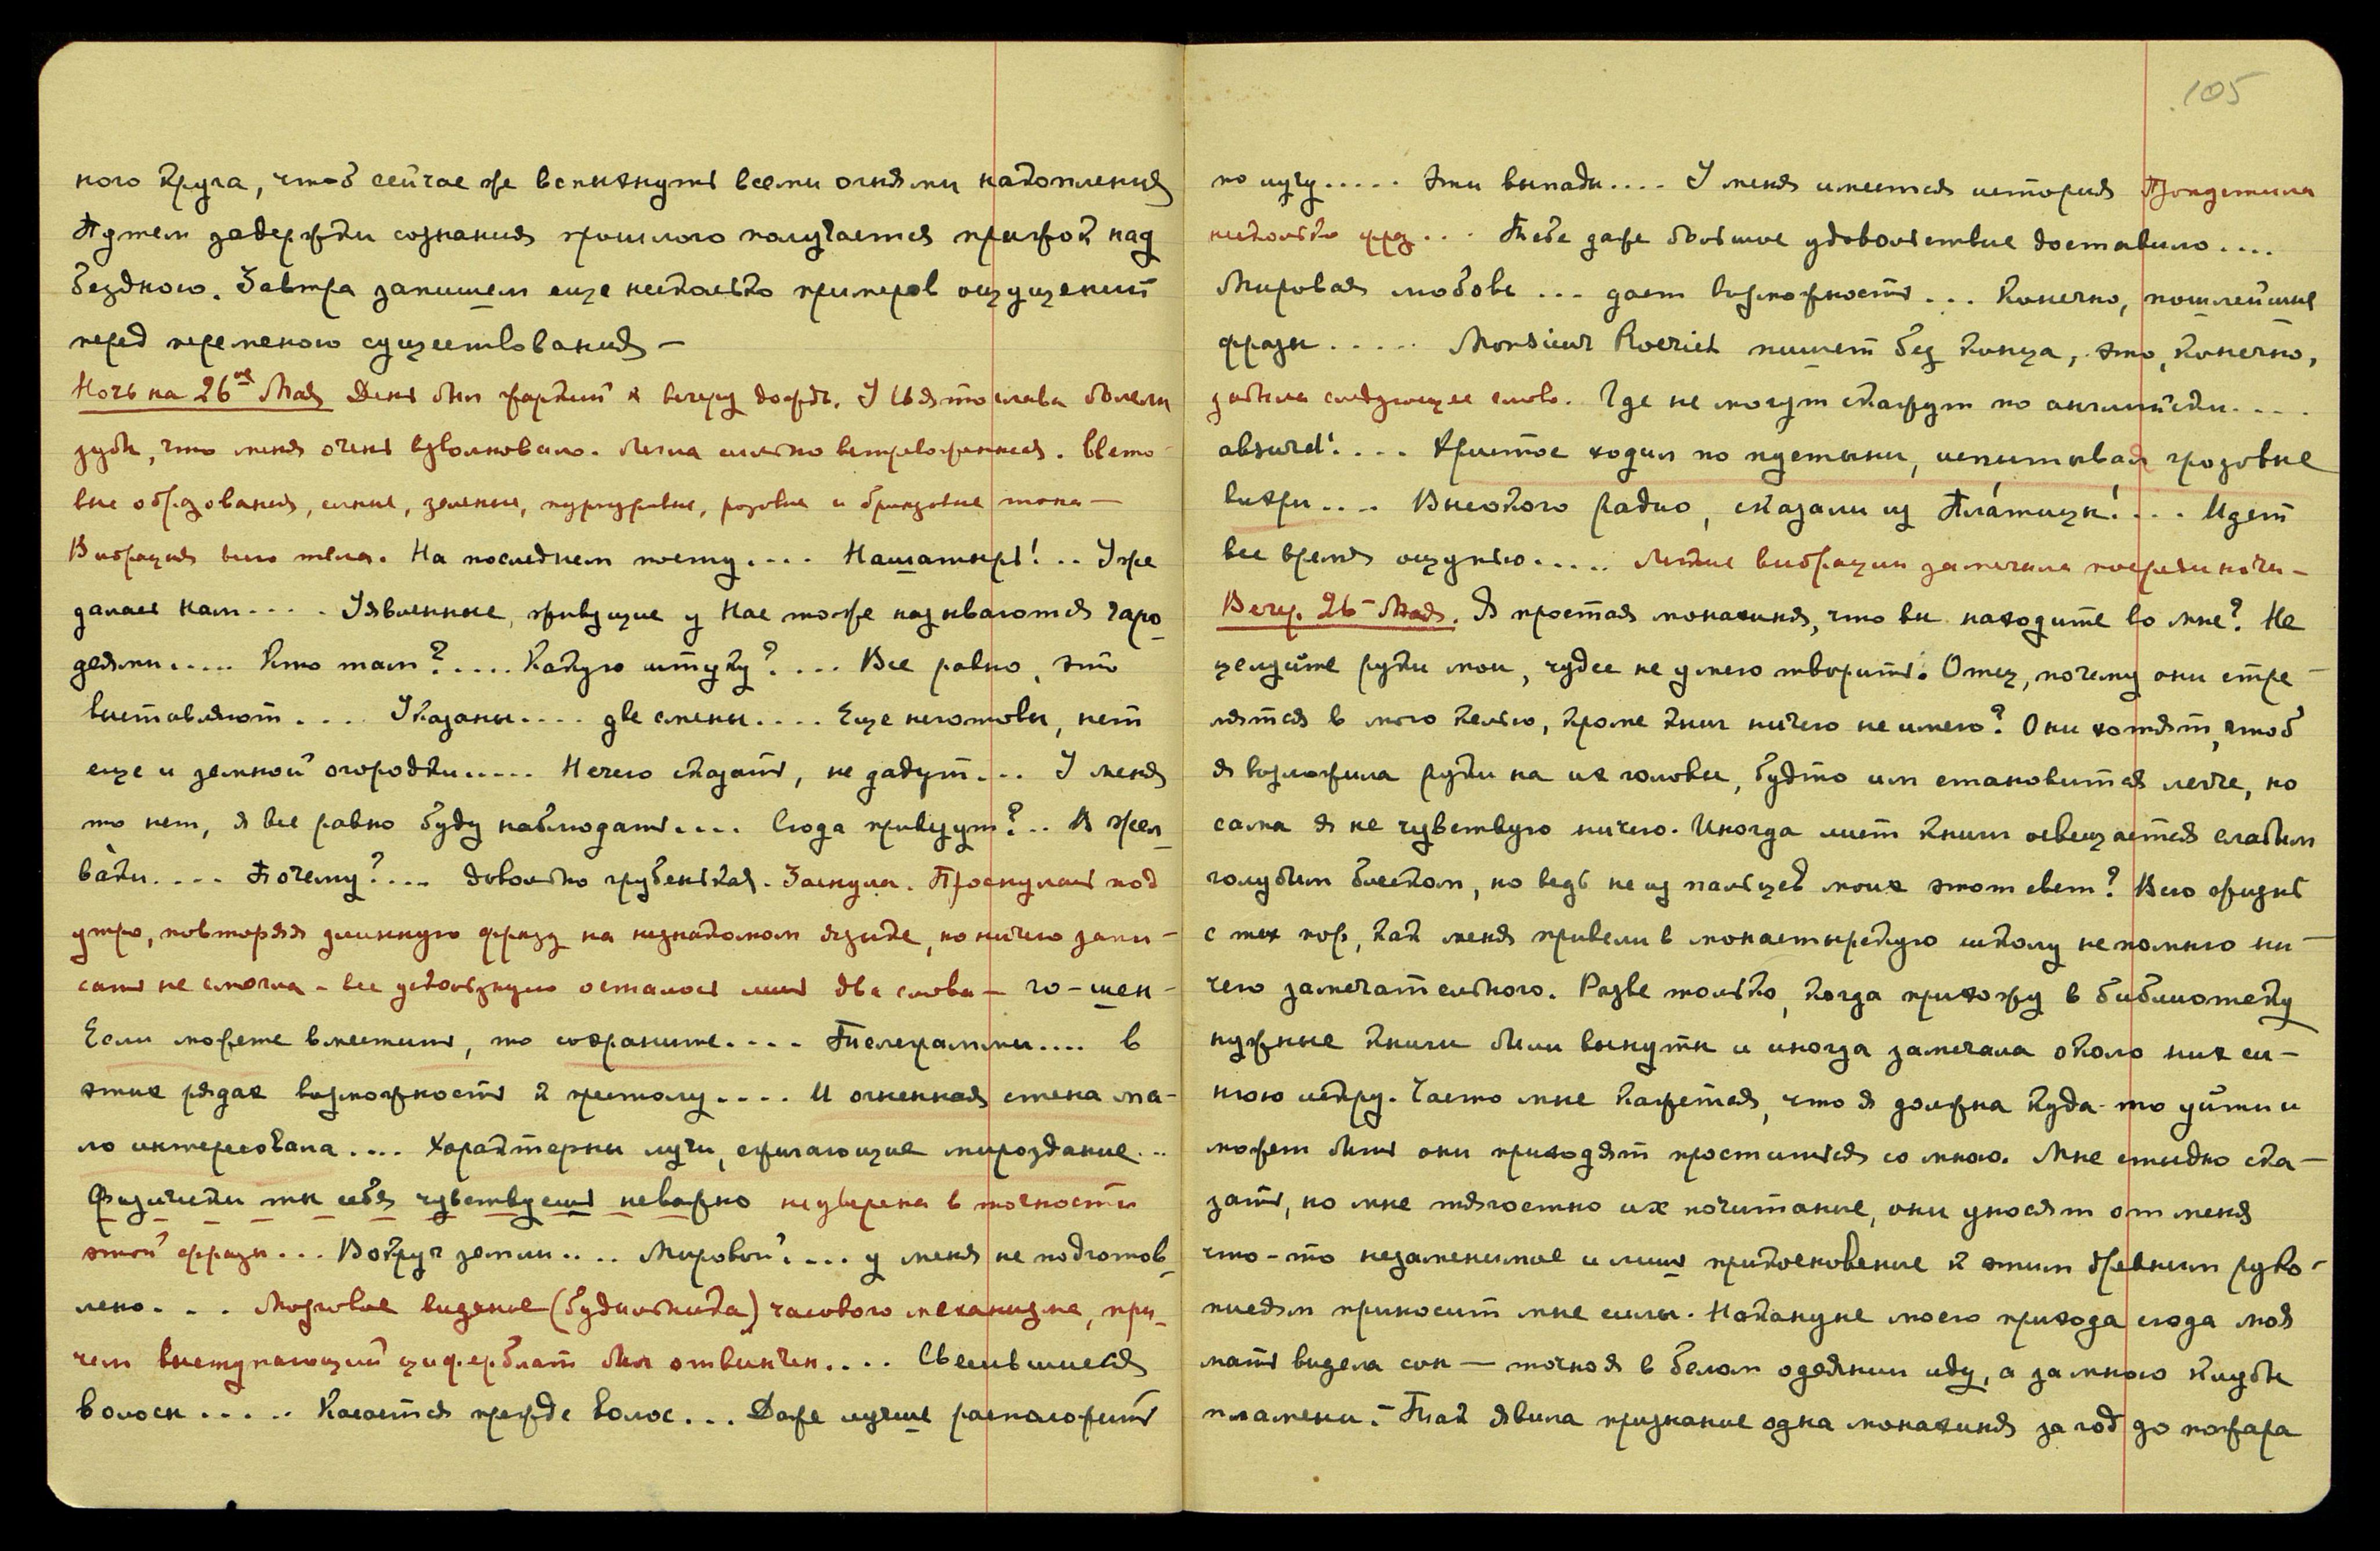 ного круга, чтоб сейчас же вспыхнуть всеми огнями накопления
Путем задержки сознания прошлого получается прыжок над
бездною. Завтра запишем еще несколько примеров ощущений
перед переменою существования —
Ночь на 26ое Мая День был жаркий к вечеру дождь. У Святослава болели
зубы, что меня очень взволновало. Легла сильно встревоженная. Свето-
вые образования, синие, зеленые, пурпуровые, розовые и бронзовые тона —
Вибрация всего тела. На последнем посту.... Нашатырь!.. Уже
далось нам.... Удвленные, живущие у Нас тоже называются чаро-
деями..... Кто там?.... Какую штуку?.... Все равно, это
выставляют.... Указаны.... две смены.... Еще неготовы, нет
еще и земной огородки..... Нечего сказать, не дадут... У меня
то нет, я все равно буду наблюдать.... Сюда привезут?.. В жел
вàки.... Почему?.... довольно грубенькая. Заснула. Проснулась под
утро, повторяя длинную фразу на незнакомом языке, но ничего запи-
сать не смогла – все ускользнуло осталось лишь два слова — го-шен-
Если можете вместить, то сохраните.... Телеграммы.... в
этих рядах возможность к престолу.... И огненная стена ма-
ло интересовала.... Характерны лучи, сжигающие мироздание...
Физически ты себя чувствуешь неважно не уверена в точности
этой фразы... Вокруг земли.... Мировой.... у меня не подготов-
лено.... Мозговое видение (будильника) часового механизма, при-
чем выступающий циферблат был отвинчен.... Свесившиеся
волосы..... Касается прежде волос... Даже лучше расположить
105
по лучу..... Эти выпады.... У меня имеется история Пропустила
несколько фраз... Тебе даже большое удовольствие доставило....
Мировая любовь ... дает возможность... Конечно, пошлейшие
фразы ..... Monsieur Roerich пишет без конца, это, конечно,
забыла следующее слово. Где не могут скажут по английски....
absurd!.... Христос ходил по пустыни, испытывая грозовые
вихри.... Высокого радио, сказали из Плáтицы!.... Идет
все время ощупью..... Легкие вибрации замечала посреди ночи –
Вечер. 26– Мая. Я простая монахиня, что вы находите во мне? Не
целуйте руки мои, чудес не умею творить. Отец, почему они стре-
мятся в мою келью, кроме книг ничего не имею? Они хотят, чтоб
я возложила руки на их головы, будто им становится легче, но
сама я не чувствую ничего. Иногда лист книги освещается слабым
голубым блеском, но ведь не из пальцев моих этот свет? Всю жизнь
с тех пор, как меня привели в монастырскую школу не помню ни-
чего замечательного. Разве только, когда прихожу в библиотеку
нужные книги были вынуты и иногда замечала около них си-
нюю искру. Часто мне кажется, что я должна куда-то уйти и
может быть они приходят проститься со мною. Мне стыдно ска-
зать, но мне тягостно их почитание, они уносят от меня
что-то незаменимое и лишь прикосновение к этим древним руко-
писям приносит мне силы. Накануне моего прихода сюда моя
мать видела сон — точно я в белом одеянии иду, а за мною клубы
пламени. – Так явила признание одна монахиня за год до пожара